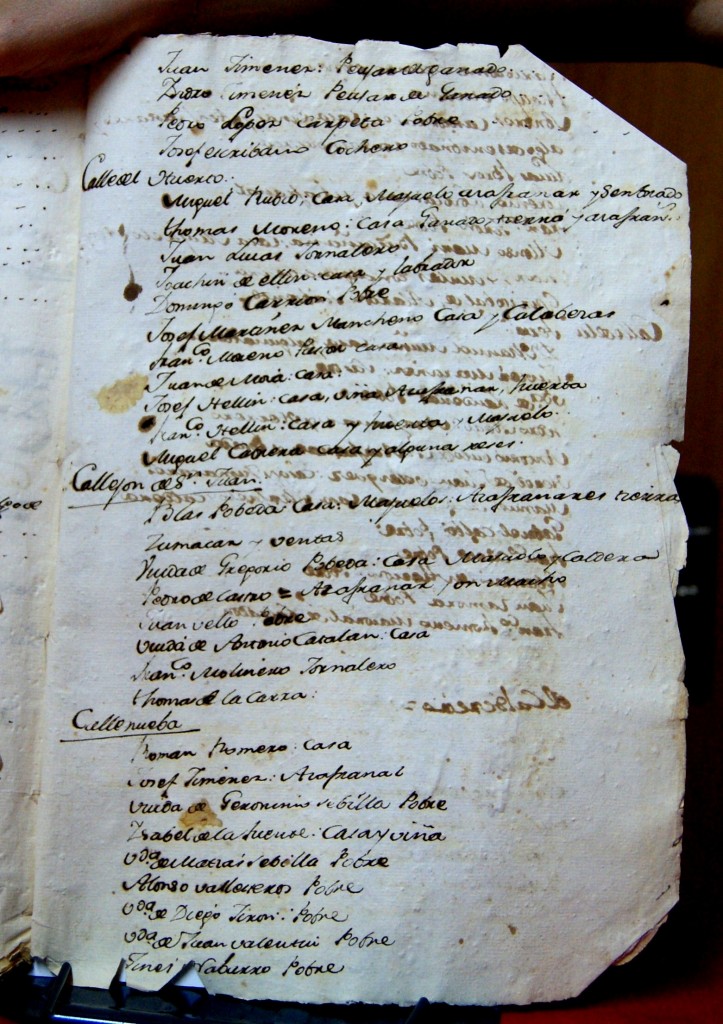 Juan Jimenez: Pensar de ganado
Diego Jimenez Pensar de Ganado
Pedro Lopez Carpeta Pobre
Josef escribano Cochero
Calle del Huerto:
Miguel Rubio: Casa, Majuelo azafranar y Sembrado
thomas Moreno: Casa Ganado, tierra y azafran.
Juan Lucas Jornalero
Joachin de ellin: casa y labrador
Domingo Carrion Pobre
Josef Mancheno Casa y Calaberas
Fran.co Moreno Casa
Juan de Moia: Casa:
Josef Hellin: Casa, viña Azafranar, huerta
Fran.co Hellin: Casa y huerta y Majuelo
Miguel Cabrera Casa y alguna reses:
Callejon de S.n Juan:
Blas Pobeda: Casa: Majuelos: Azafranares tierra
Zumacar y ventas
Viuda de Gregorio Pobeda: Casa Majuelo y Caldera
Pedro de Castro = Azafranar y on Macho
Juan vello Pobre
viuda de Antonio Catalan: Casa
Fran.co Molinero Jornalero
thomas de la Carra:
Calle nueba
Roman Romero: Casa
Josef Jimenez: Azafranal
viuda de Geronimo sebilla Pobre
Ysabel de la fuente: Casa y viña
v.da de Matias sebilla Pobre
Alonso Pobre
v.da de Diego Jiron: Pobre
v.da de Juan valentin Pobre
Jines Naburro Pobre